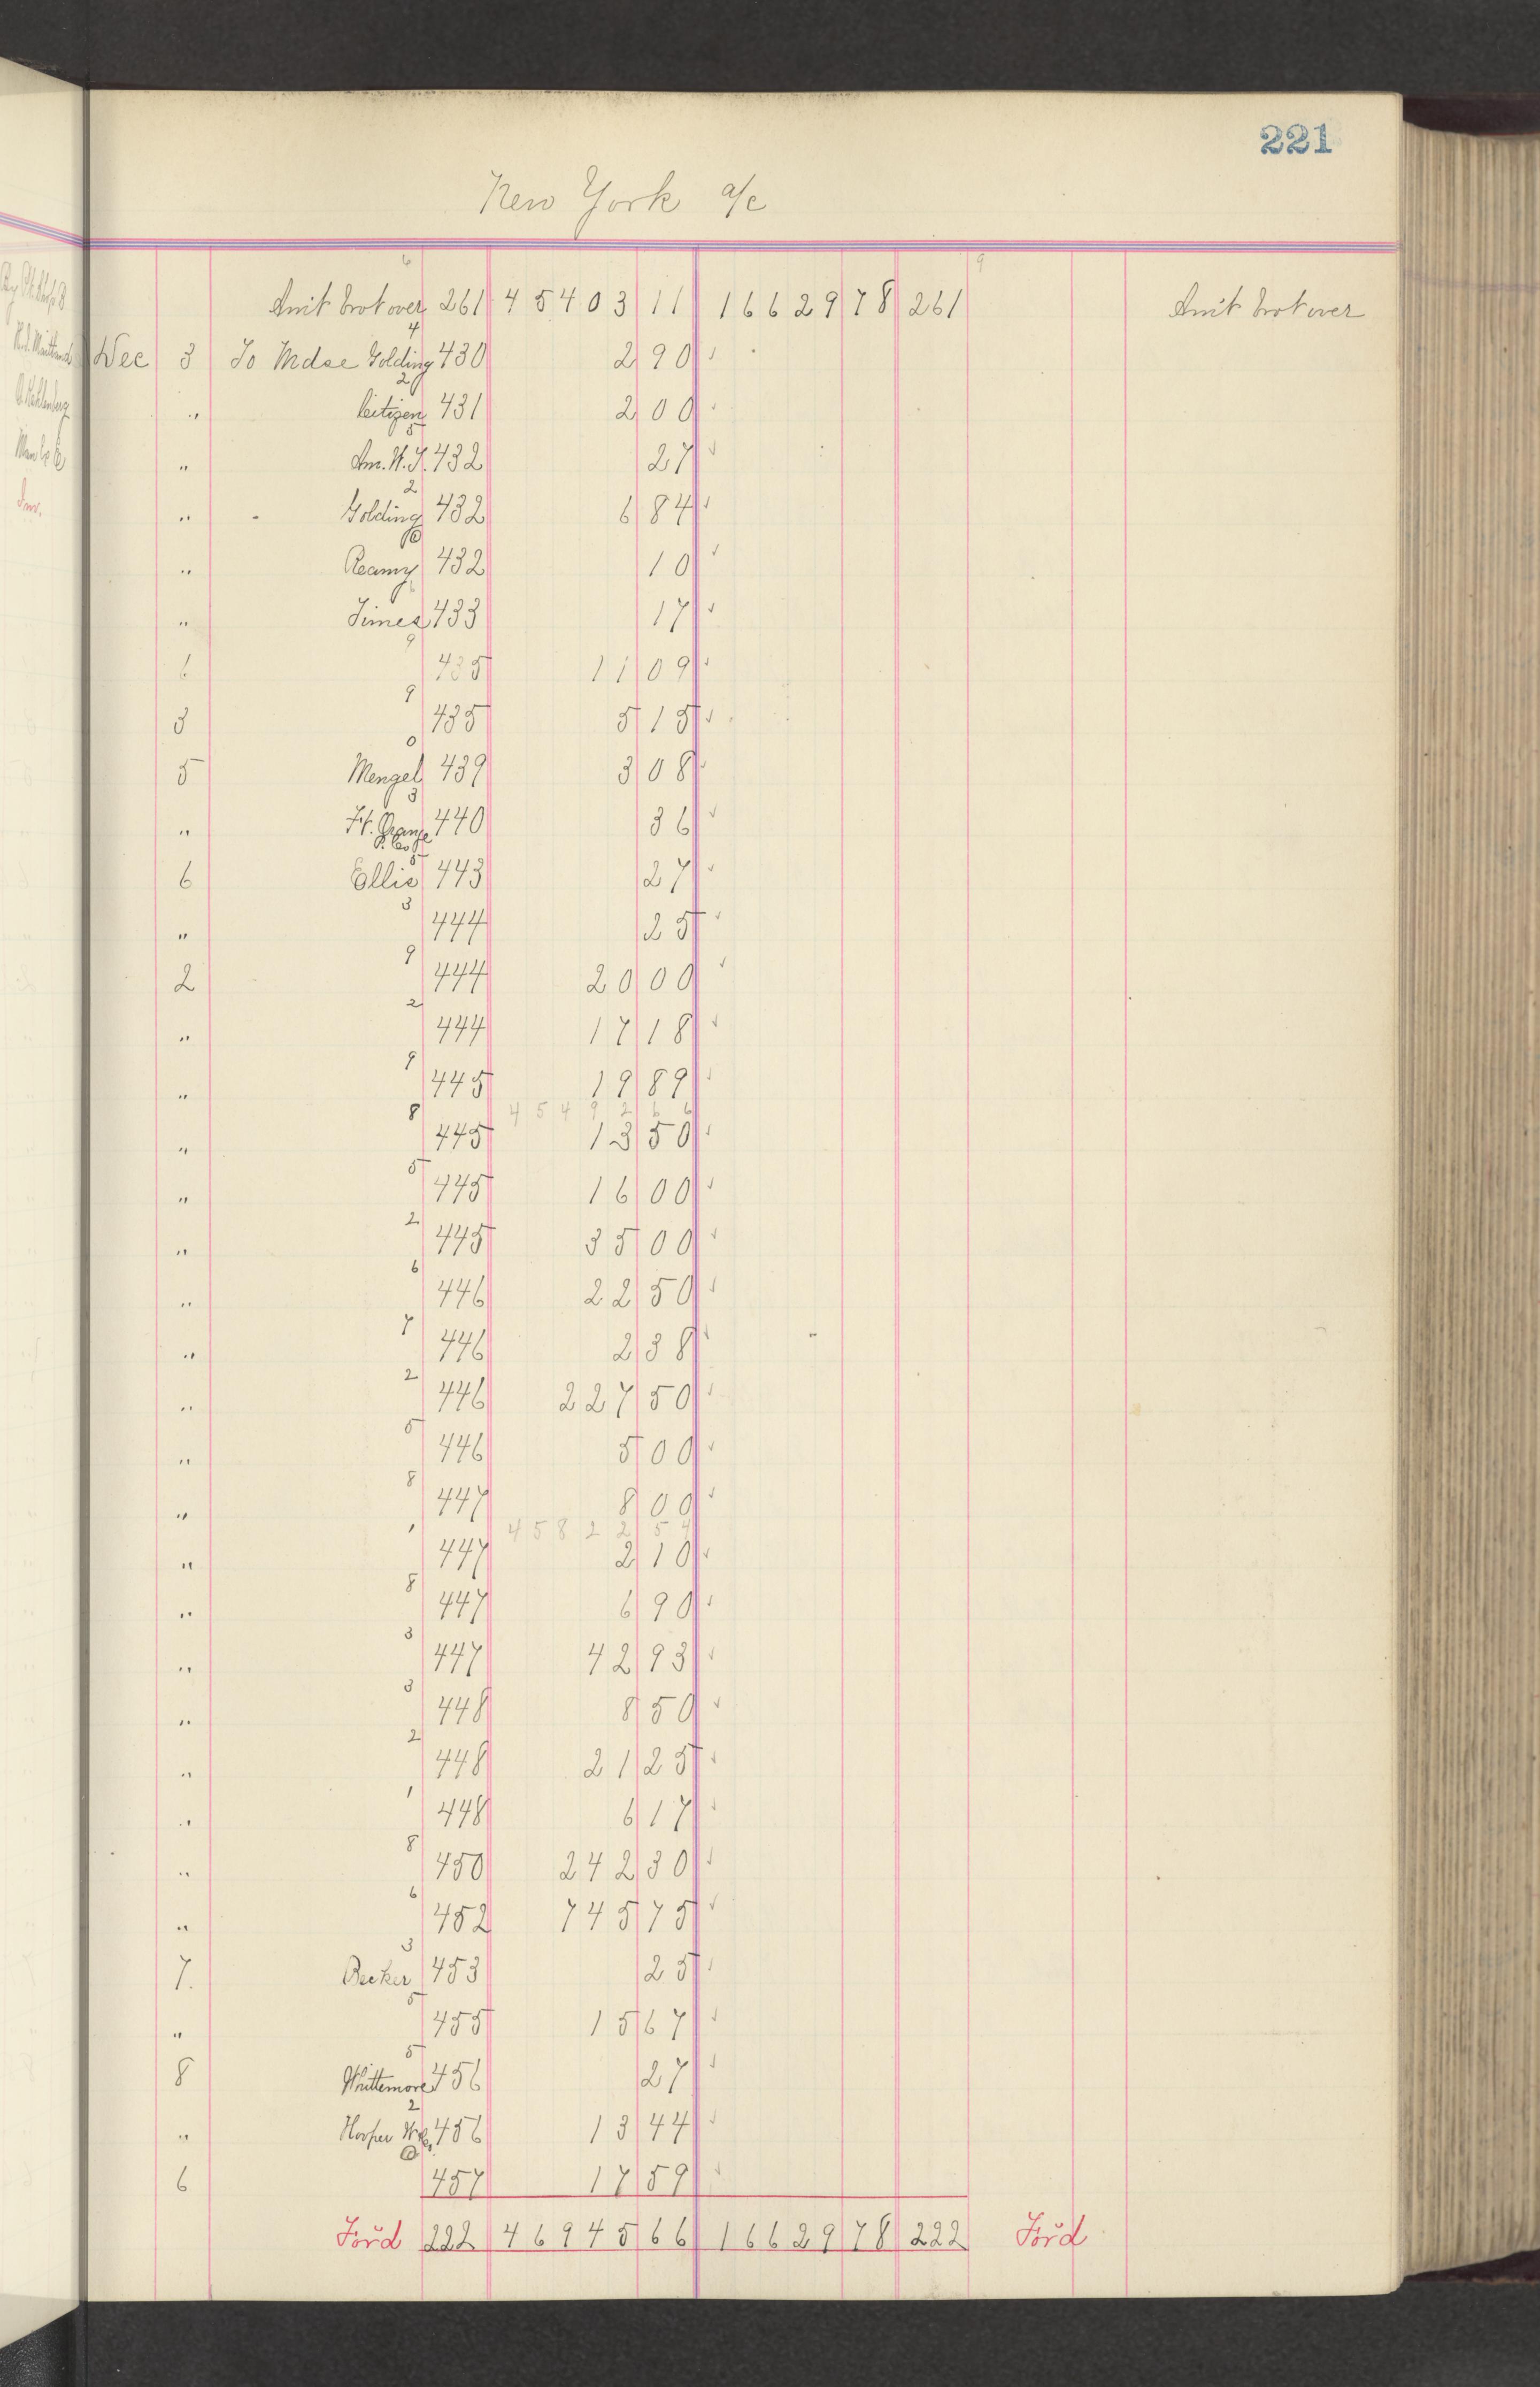 221
New York a/c
6 9
Amt brot over 261 45403 11 16629 78 261 Amt brot over
4
Dec 3 To Mdse Golding 430 2 90 ✓
2
" Citizen 431 2 00 ✓
5
" Am. W. J. 432 27 ✓
2
" Golding 432 6 84 ✓
" Reamy 432 10 ✓
" Times 433 17 ✓
9
6 435 11 09 ✓
9
3 435 5 15 ✓
0
5 Mengel 439 3 08 ✓
3
" Ft. Orange P. Co 440 36 ✓
5
6 Ellis 443 27 ✓
3
" 444 25 ✓
9
2 444 20 00 ✓
2
" 444 17 18 ✓
9
" 445 19 89 ✓
8 45492 66
" 445 13 50 ✓
5
" 445 16 00 ✓
2
" 445 35 00 ✓
6
" 446 22 50 ✓
7
" 446 2 38 ✓
2
" 446 227 50 ✓
5
" 446 5 00 ✓
8
" 447 8 00 ✓
1 45822 54
" 447 2 10 ✓
8
" 447 6 90 ✓
3
" 447 42 93 ✓
3
" 448 8 50 ✓
2
" 448 21 25 ✓
1
" 448 6 17 ✓
8
" 450 242 30 ✓
6
" 452 745 75 ✓
3
7. Becker 453 25 ✓
5
" 455 15 67 ✓
5
8 Whittemore 456 27 ✓
2
" Hooper W. 456 13 44 ✓
6 457 17 59 ✓
Ford 222 46945 66 16629 78 222 Ford